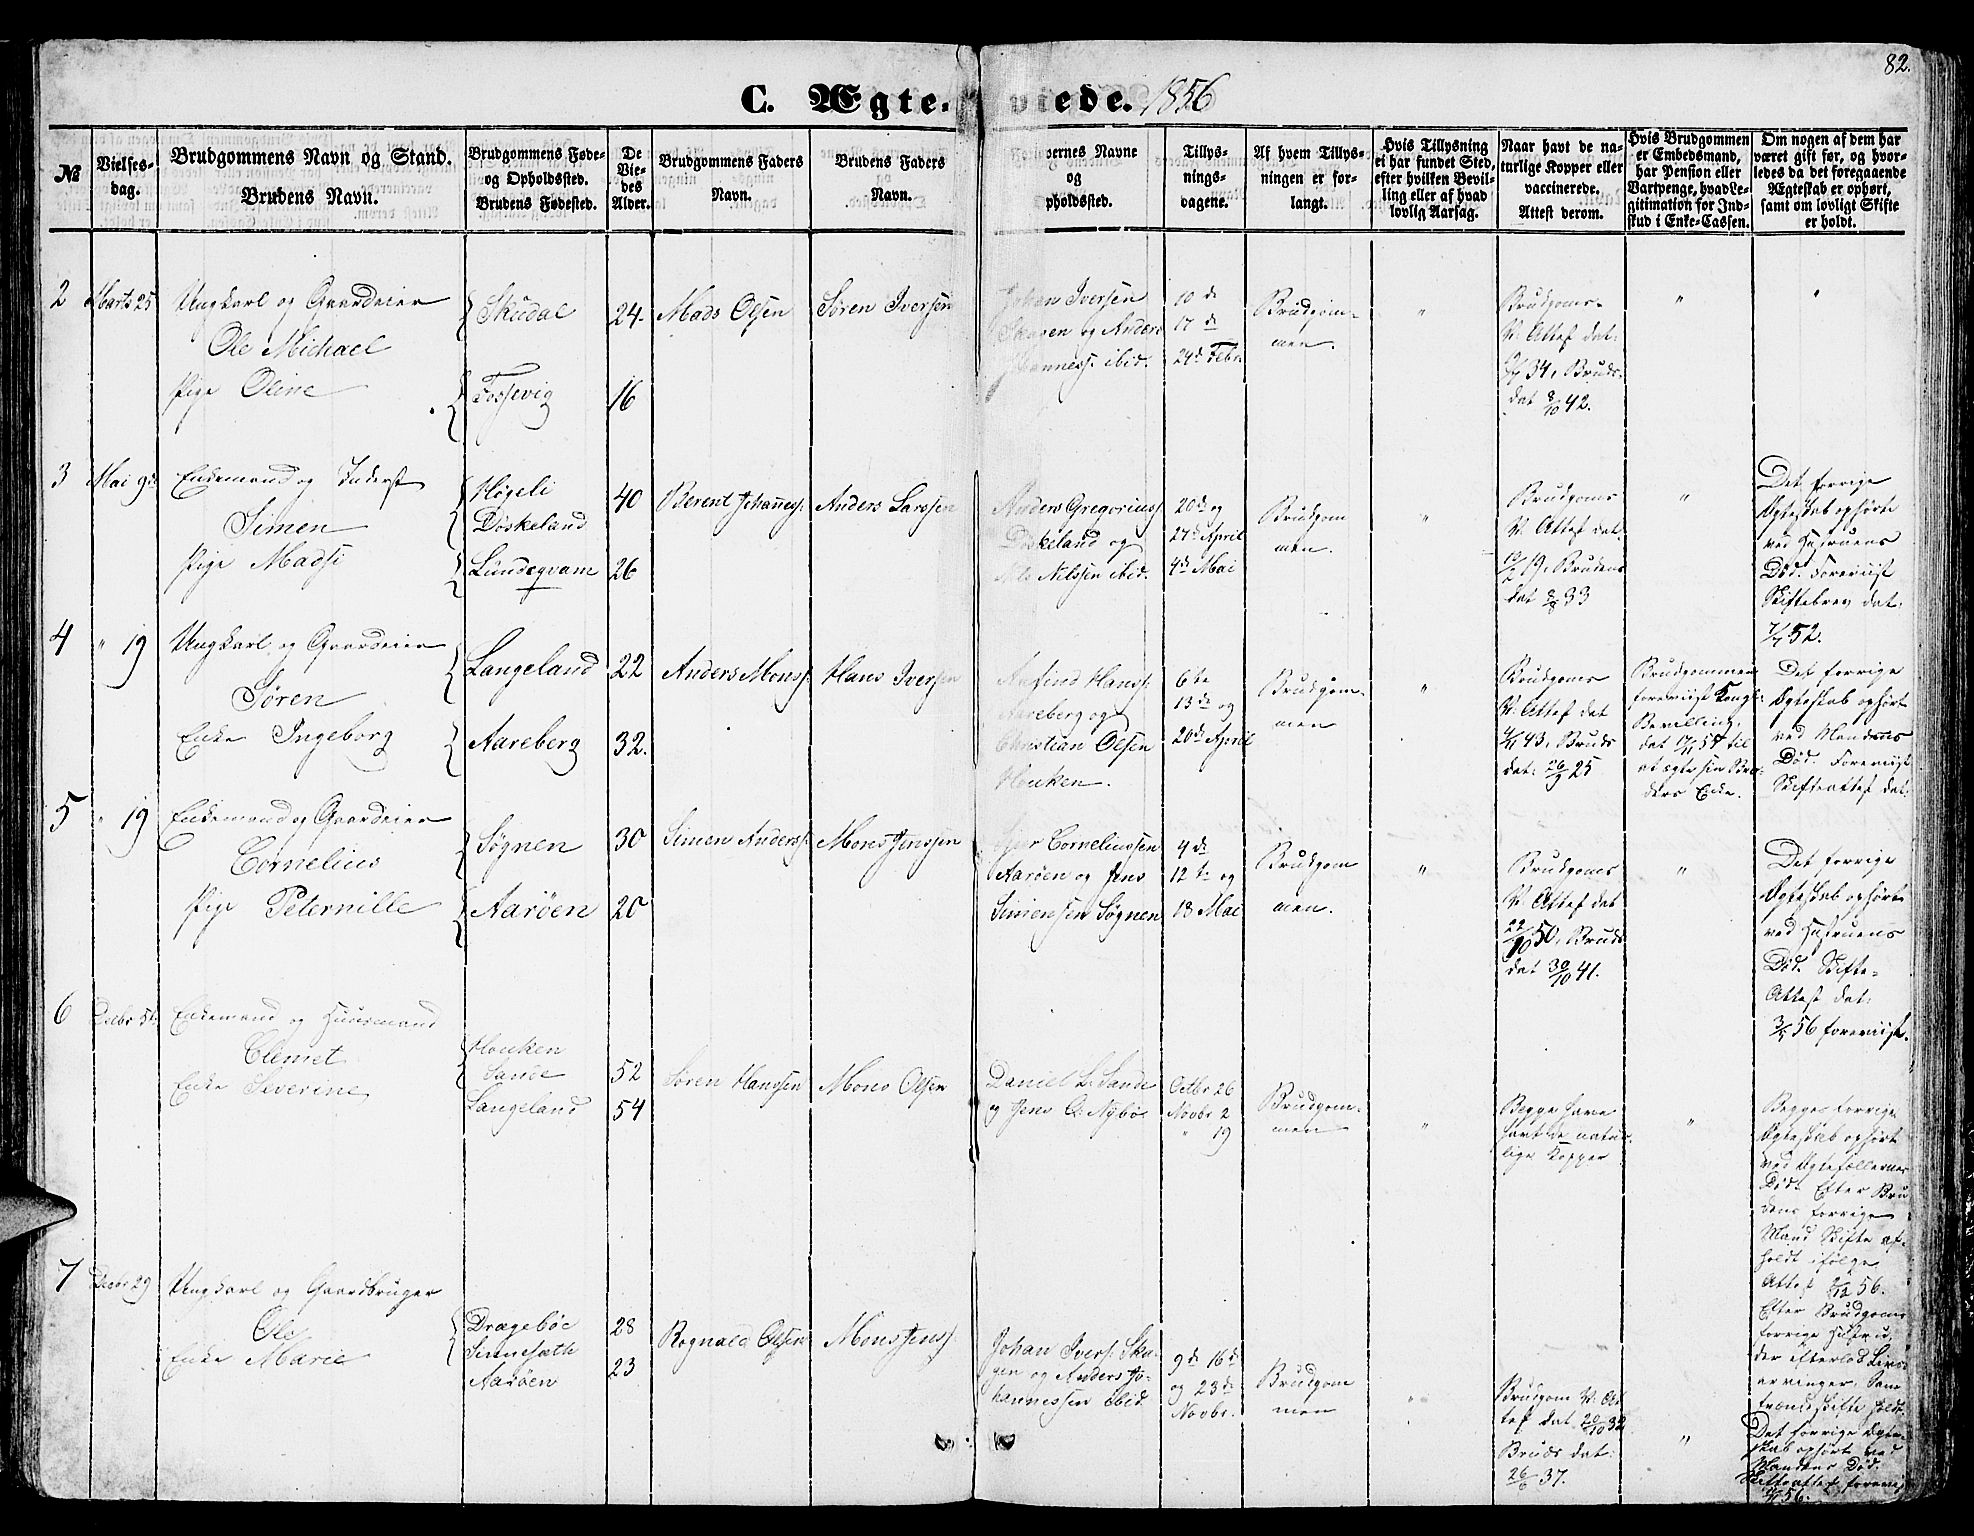 82.
C. Ægte- viede. 1856
№
Vielses-
dag.
Brudgommens Navn og Stand.
Brudens Navn.
Brudgommens Føde-
og Opholdssted.
Brudens Fødested.
De
Vie-
des
Alder.
Brudgommens Faders
Navn.
Brudens Faders
Navn.
vernes Navne
og
pholdssted.
Tillys-
nings-
dagene.
Af hvem Tillys-
ningen er for-
langt.
Hvis Tillysning
ei har fundet Sted,
efter hvilken Bevil-
ling eller af hvad
lovlig Aarsag.
Naar havt de na-
turlige Kopper eller
vaccinerede.
Attest derom.
Hvis Brudgommen
er Embedsmand,
har Pension eller
Vartpenge, hvad Le-
gitimation for Ind-
skud i Enke-Cassen.
Om nogen af dem har
været gift før, og hvor-
ledes da det foregaaende
Ægteskab er ophørt,
samt om lovligt Skifte
er holdt.
2
Marts 25
Ungkarl og Gaardeier
Ole Michael
Pige Oline
Skudal
Fossevig
24.
16
Mads Olsen
Søren Iversen
Johan Iversen
Skagen og Anders
Johanness. ibid.
10de
17de
24de Febr.
Brudgom-
men.
"
Brudgoms-
V. Attest dat:
34, Bruds.
dat 8/10 42.
"
"
3
Mai 9de
Enkemand og Inderst
Simen
Pige Madsi
Høgeli
Døskeland
Lundeqvam
40
26
Berent Johanness:
Anders Larssen
Anders Gregoriuss
Døskeland og
Nils Nilssen ibid.
20de og
27de April
4de Mai
Brudgom
men.
"
Brudgoms
V. Attest dat.
19, Brudens
dat 33
"
Det forrige
Ægteskab ophørte
ved Hustruens
Død. Foreviist
Skiftebrev dat.
52.
4
" 19
Ungkarl og Gaardeier
Søren
Enke Ingeborg
Langeland
Aareberg
22
32.
Anders Monss:
Hans Iversen
Anfind Hanss:
Aareberg og
Christian Olsen
Houken.
6te
13de og
20de April
Brudgom-
men
"
Brudgoms
V. Attest dat
43. Bruds
dat: 26/9 25
Brudgommen
foreviist Kongl:
Bevilling,
dat 54 til
at ægte sin Bro-
ders Enke.
Det forrige
Ægteskab ophørt
ved Mandens
Død. Foreviist
Skifteattest dat.
5
" 19
Enkemand og Gaardeier
Cornelius
Pige Peternille
Søgnen
Aarøen
30
20
Simen Anderss:
Mons Jenssen
Corneliussen
Aarøen og Jens
Simensen Søgnen
4de
12te og
18 Mai
Brudgom
men.
"
Brudgoms
V. Attest dat
22/10 50, Bruds
dat 30/10 41.
"
Det forrige
Ægteskab ophørt
ved Hustruens
Død. Skifte-
Attest dat:
56 foreviist.
6
Enkemand og Huusmand
Clemet
Enke Severine
Houken
Sande
Langeland
52
54
Søren Hanssen
Mons Olsen
Daniel L. Sande
og Jens O. Nybø
Octbr 26
Novbr 2
" 19
Brudgom-
men
"
Begge have
havt de natur-
lige Kopper
"
Begges forrige
Ægteskab ophørt
ved Ægtefællernes
Død. Efter Bru
dens forrige
Mand Skifte af-
holdt ifølge
Attest 56.
Efter Brudgoms
forrige Hustru,
der efterlod Livs-
arvinger, Sam
frændeskifte holdt.
7
Decbr 29
Ungkarl og Gaardbruger
Ole
Enke Marie
Drægebøe
Sennesæth
Aarøen
28
23
Rognald Olsen
Mons Jenss:
Johan Iverss: Ska-
gen og Anders Jo-
hannessen ibid.
9de 16de
og 23de
Novbr.
Brudgom
men
"
Brudgom V. At
test dat 20/10 32
Bruds dat:
26/6 37.
"
Det forrige Ægte-
skab ophørt ved
Mandens Død.
Skifteattest forevist
56.